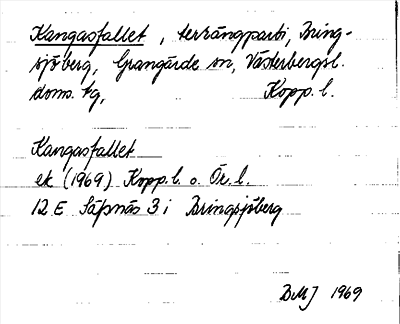 Kangasfallet, terrängparti, Bring-
sjöberg, Grangärde sn, Västerbergsl.
doms. tg, Kopp. l.
Kangasfallet
ek (1969) Kopp. l. o. Ör. l.
12 E Säfsnäs 3 i Bringsjöberg
BMJ 1969